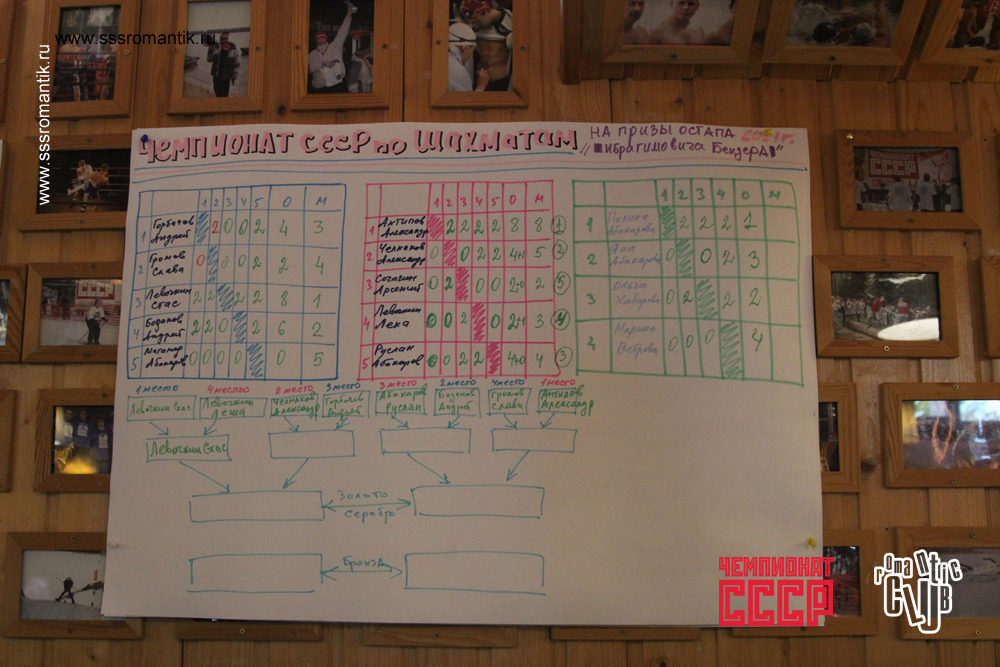 www.sssromantik.ru
www.sssromantik.ru
ЧЕМПИОНАТ СССР ПО ШАХМАТАМ
НА ПРИЗЫ ОСТАПА
"ИБРАГИМОВИЧА БЕНДЕРА"
1 2 3 4 5 О М
1 Горбачев Андрей 2 0 0 2 4 3
2 Громов Слава 0 0 0 2 2 4
3 Левочкин Стас 2 2 2 2 8 1
4 Андрей 2 2 0 2 6 2
5 0 0 0 0 0 5
1 2 3 4 5 О М
1 Антипов Александр 2 2 2 2 8 8 1
2 Челнаков Александр 0 0 2 0 5 2
3 Арсений 0 2 0 0 2 5
4 Левочкин Леха 0 0 2 0 3 4
5 Руслан Абакаров 0 0 2 2 4 3
1 2 3 4 О М
1 Полина Абакарова 2 2 2 1
2 Яна Абакарова 0 0 2 3
3 Ольга 0 2 2 2
4 Марина Ветрова 0 0 0 4
1 место 4 место 2 место 3 место 3 место 2 место 4 место 1 место
Левочкин Стас
Левочкин Леша
Челнаков Александр
Горбачев Андрей
Абакаров Руслан
Андрей
Громов Слава
Антипов Александр
Левочкин Стас
Золото
Серебро
Бронза
ЧЕМПИОНАТ
СССР
romantic
CLUB